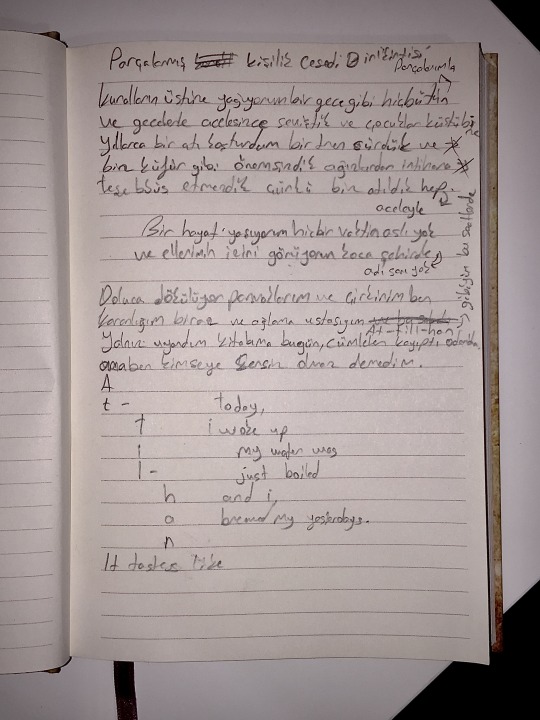 Parçalanmış kişilik cesedi Dinlentisi
Parçalarımla
kuralların üstüne yaşıyorum bir gece gibi hiçbütün
ve gecelerle acelesizce seviştik ve çocuklar küstü bine
yıllarca bir atı koşturdum bir tren sürdük ve
bin küfür gibi önemsendik ağızlardan intihara
teşebbüs etmendik çünkü bin atıldık hep.
aceleyle
Bir hayat yaşıyorum hiçbir vaktin aslı yok
ve ellerimin içini görüyorum koca şehirde
adı sanı yok
gittiğin bu saatlerde
Doluca dökülüyor parmaklarım ve çirkinim ben
karanlığım biraz ve ağlama ustasıyım
At-tili-han
Yalnız uyandım kitabıma bugün, cümleler kayıptı odamda,
ama ben kimseye sensin olmaz demedim.
A
t - today,
t i woke up
i my water was
l - just boiled
h and i,
a brewed my yesterdays.
n
It tastes like